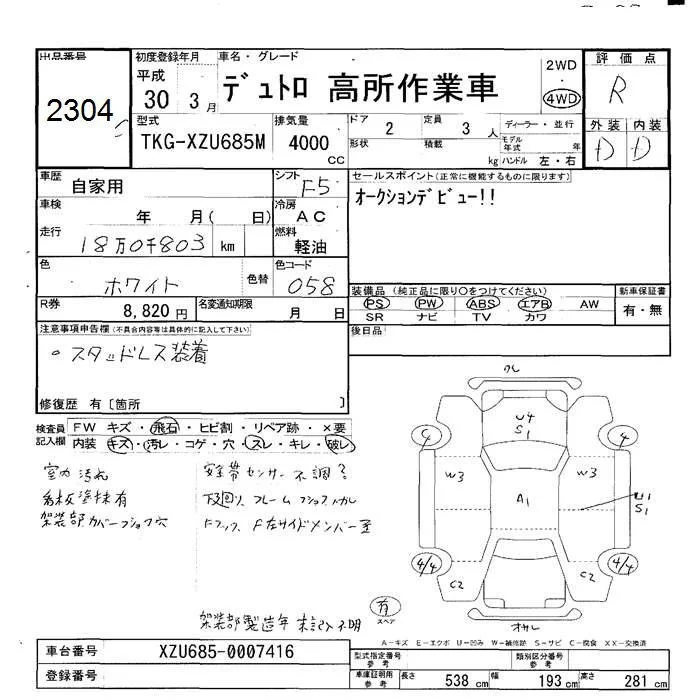 出品番号 初度登録年月 車名・グレード 2WD 評価点
2304 平成 30 3月 デュトロ 高所作業車 4WD R
型式 排気量 ドア 2 定員 3 人 ディーラー・並行 外装 内装
TKG-XZU685M 4000 CC 形状 積載 kg モデル年式 年 ハンドル 左・右 D D
車歴 自家用 シフト F5 セールスポイント(正常に機能するものに限ります)
車検 年 月( 日) 冷房 AC オークションデビュー!!
走行 18万0千803 km 燃料 軽油
色 ホワイト 色替 色コード 058
装備品 (純正品に限り〇をつけてください) 新車保証書
R券 8,820円 名変通知期限 月 日 PS PW ABS エアB AW 有・無
SR ナビ TV カワ
注意事項申告欄(不具合内容等は具体的に記入して下さい) 後日品
・スタッドレス装着
修復歴 有〔箇所 〕
検査員記入欄 FW キズ・飛石・ヒビ割・リペア跡・×要
内装 キズ・汚レ・コゲ・穴・スレ・キレ・破レ
室内汚れ 安全帯センサー不調?
看板塗抹有 下廻り フレーム
架装部カバー 穴 F左サイドメンバー
架装部製造年 不明
ワレ
U4
S1
4 4
W3 W3
A1
U1
S1
4/4 4/4
C2 C2
有
スペア
オカレ
A-キズ E-エクボ U-凹み W-補修跡 S-サビ C-腐食 XX-交換済
車台番号 XZU685-0007416 型式指定番号 参考 類別区分番号 参考
登録番号 車庫証明用 参考 長さ 538 cm 幅 193 cm 高さ 281 cm